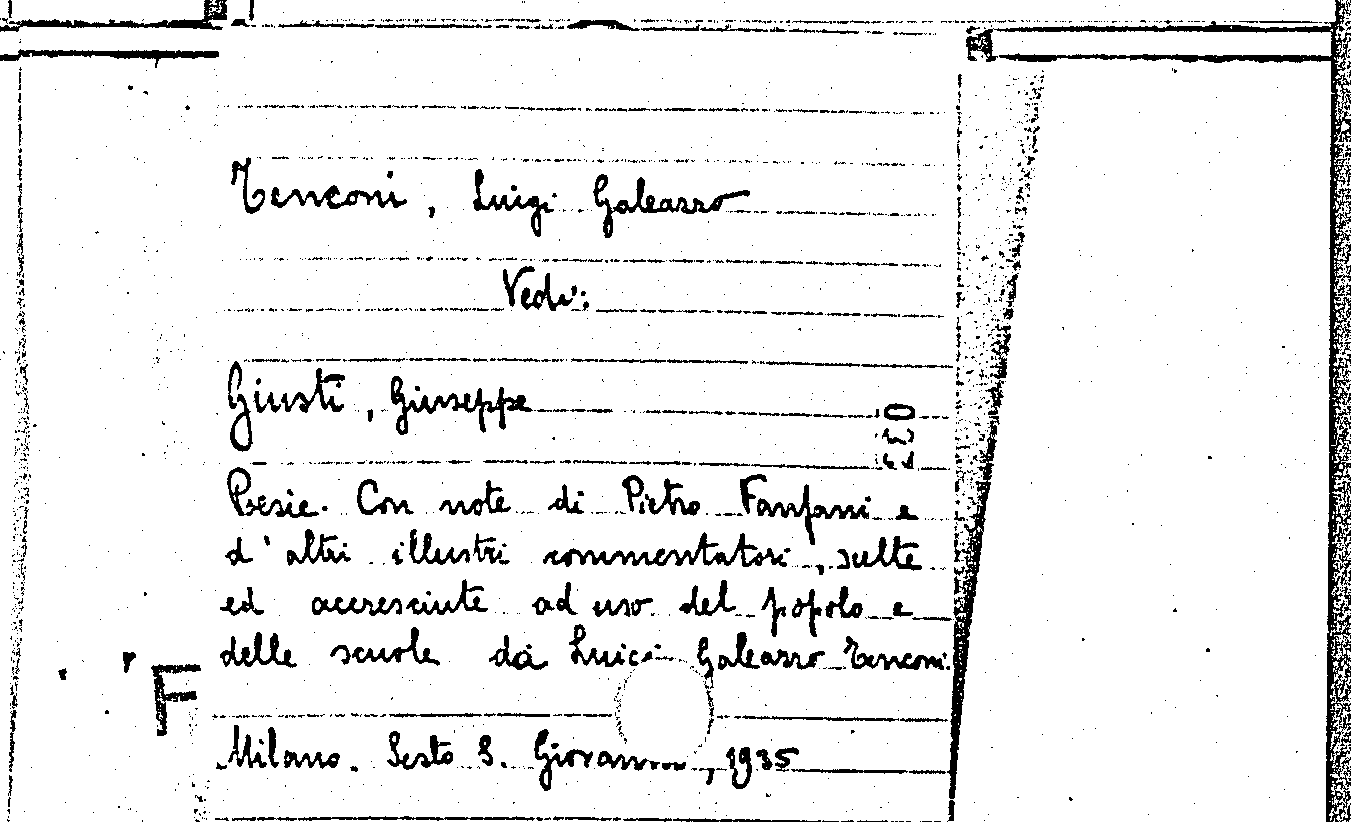 Tenconi, Luigi Galeazzo
Vedi:
Giusti, Giuseppe
Poesie. Con note di Pietro Fanfani e
d'altri illustri commentatori, scelte
ed accresciute ad uso del popolo e
delle scuole da Luigi Galeazzo Tenconi.
F
Milano. Sesto S. Giovanni, 1935